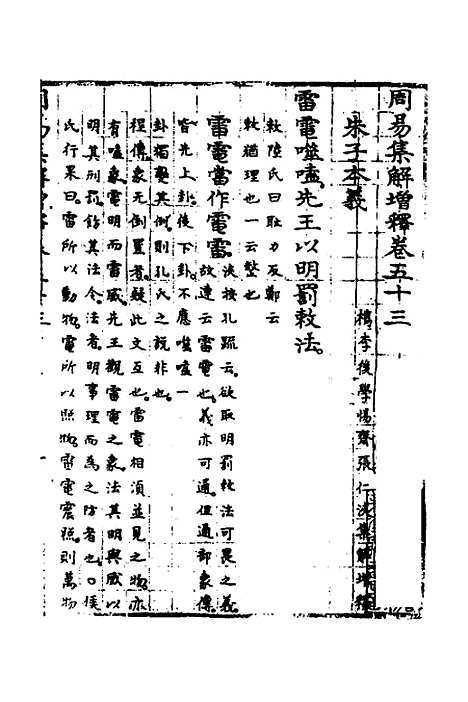 周易集解增釋卷五十三
檇李後學惕齋張仁浹集解增釋
朱子本義
雷電噬嗑先王以明罰敕法
敕陸氏曰恥力反鄭云
敕猶理也一云整也
雷電當作電雷
浹按孔疏云欲取明罰敕法可畏之義
故連云雷電也義亦可通但通部象傳
皆先上卦後下卦不應噬嗑一
卦獨變其例則孔氏之說非也
程傳象无倒置者疑此文互也雷電相須並見之物亦
有嗑象電明而雷威先王觀雷電之象法其明與威以
明其刑罰飭其法令法者明事理而為之防者也○侯
氏行果曰雷所以動物電所以照物雷電震照則萬物